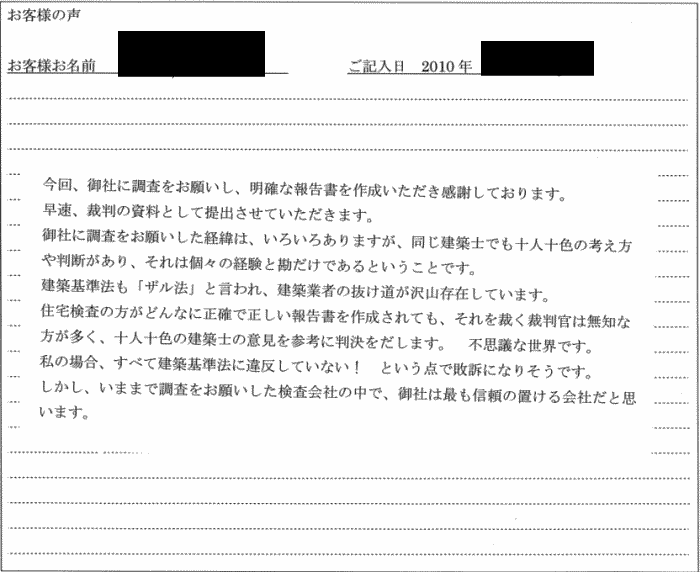 お客様の声
お客様お名前　ご記入日　2010 年
今回、御社に調査をお願いし、明確な報告書を作成いただき感謝しております。
早速、裁判の資料として提出させていただきます。
御社に調査をお願いした経緯は、いろいろありますが、同じ建築士でも十人十色の考え方
や判断があり、それは個々の経験と勘だけであるということです。
建築基準法も「ザル法」と言われ、建築業者の抜け道が沢山存在しています。
住宅検査の方がどんなに正確で正しい報告書を作成されても、それを裁く裁判官は無知な
方が多く、十人十色の建築士の意見を参考に判決をだします。　不思議な世界です。
私の場合、すべて建築基準法に違反していない！　という点で敗訴になりそうです。
しかし、いままで調査をお願いした検査会社の中で、御社は最も信頼の置ける会社だと思
います。